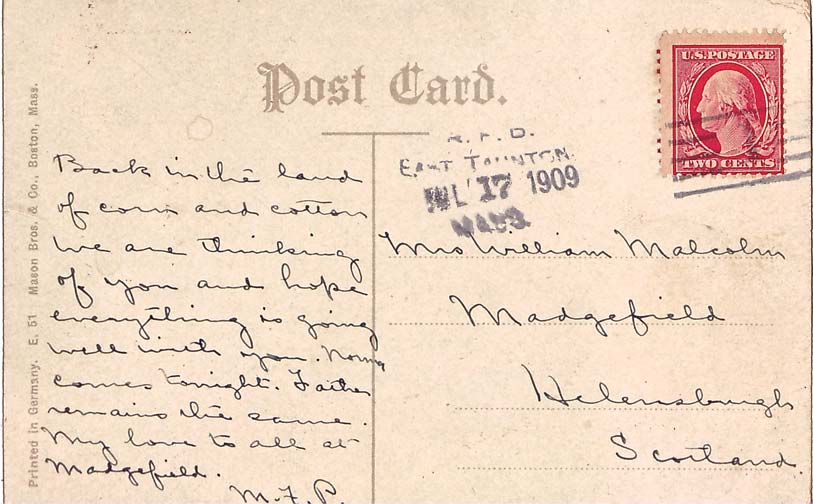 Post Card.
U.S. POSTAGE
TWO CENTS
R. F. D.
EAST TAUNTON.
JUL 17 1909
MASS.
Back in the land
of corn and cotton
we are thinking
of you and hope
everything is going
well with you. Norma
comes tonight. Father
remains the same.
My love to all at
Madgefield.
M. F. P.
Mrs William Malcolm
Madgefield
Helensburgh
Scotland.
Printed in Germany. E. 51 Mason Bros. & Co., Boston, Mass.